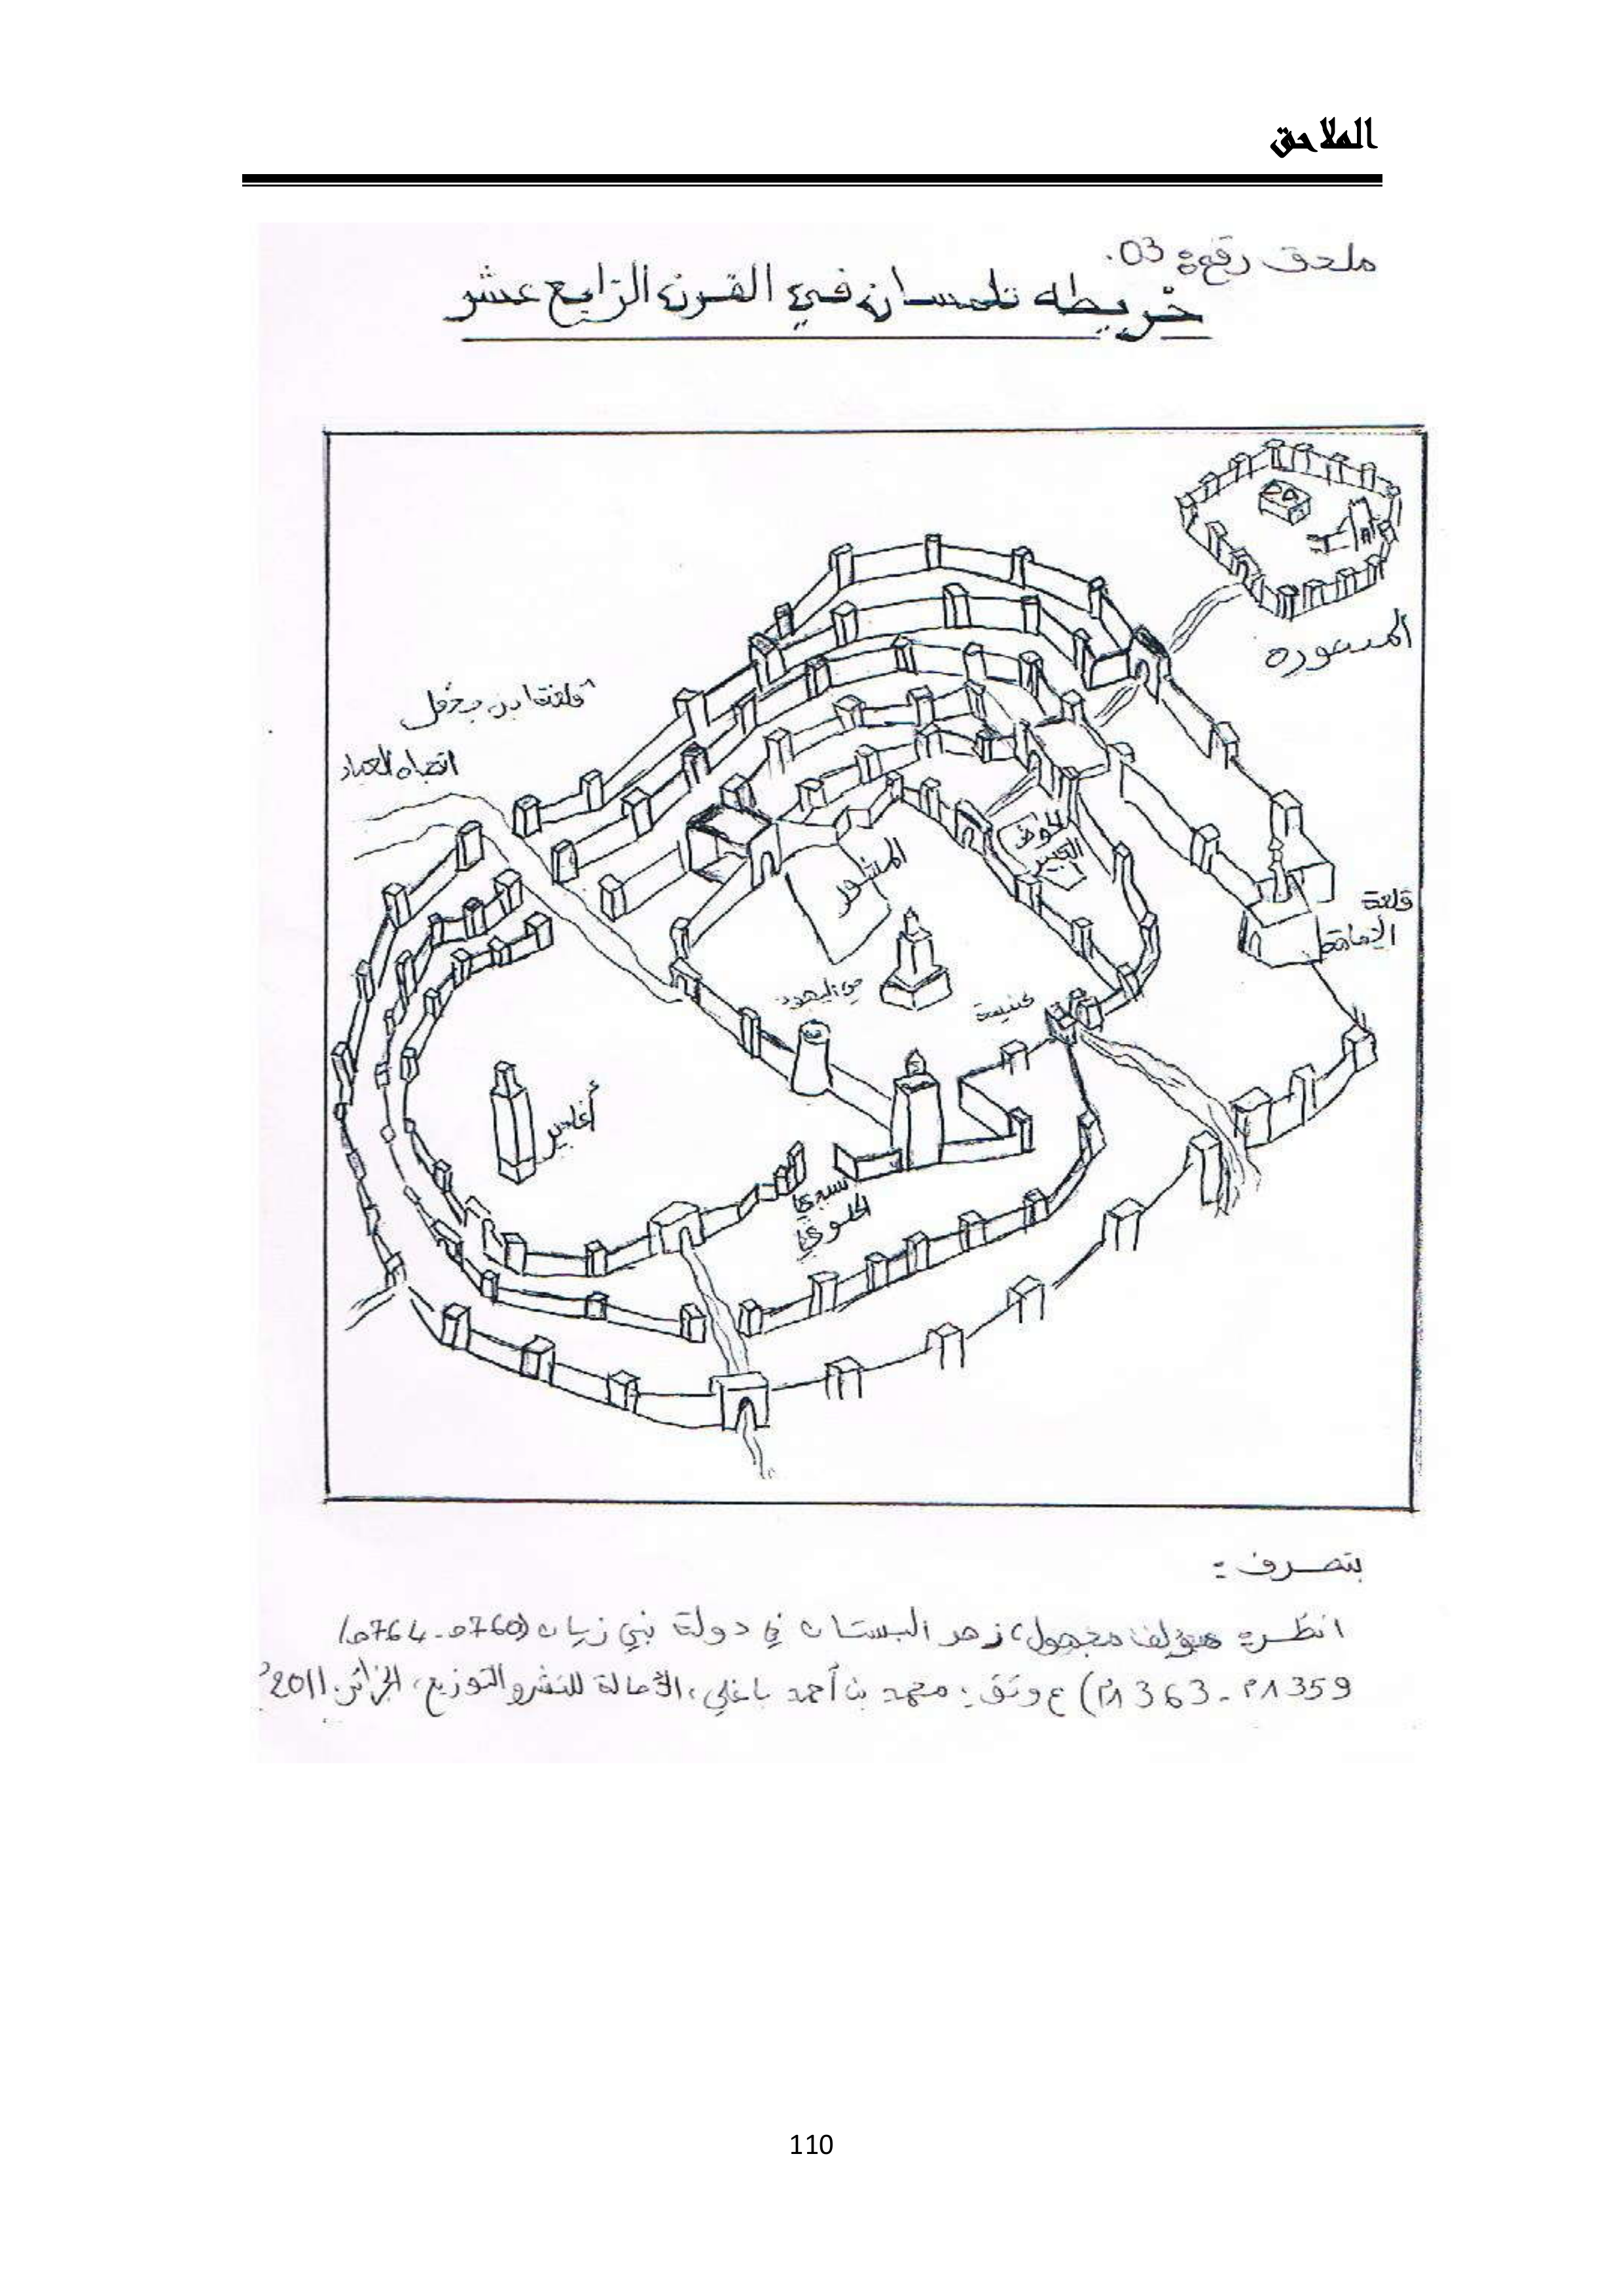 الملاحق
ملحق رقم: 03.
خريطه تلمسان في القرن الرّابع عشر
المنصوره
قلعة ابن
اتجاه العباد
الحوض
الكبير
المشور
قلعة
حي اليهود
كنيسة
أغادير
سيدي
الحلوي
بتصرف:
انظر: مؤلف مجهول، زهر البستان في دولة بني زيان (760هـ-764هـ/
1359م-1363م) ع وتق: محمد بن أحمد باغلي، الأصالة للنشر والتوزيع، الجزائر، 2011
110